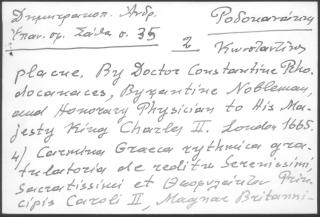 Δημητρακοπ. Ἀνδρ.
Ροδοκανάκης
Ὑπαν. σημ. Σάθα σ. 35
2
Κωνσταντῖνος
plague. By Doctor Constantine Rho-
docanaces, Byzantine Nobleman,
and Honorary Physician to His Ma-
jesty King Charles II. London 1665.
4) Carmina Graeca rythmica gra-
tulatoria de reditu Serenissimi,
Sacratissimi et Θεοφυλάκτου Prin-
cipis Caroli II, Magnae Britanni-